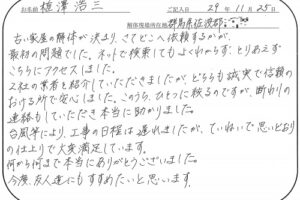 お名前 植澤浩三 ご記入日 29年11月25日
解体現場所在地 群馬県佐波郡
古い家屋の解体が決まり、さてどこへ依頼するかが、
最初の問題でした。ネットで検索してもよくわからず、とりあえず
こちらにアクセスしました。
2社の業者を紹介していただきましたが、どちらも誠実で信頼の
おける所で安心しました。このうち、ひとつに絞るのですが、断わりの
連絡もしていただき本当に助かりました。
台風等により、工事の日程は遅れましたが、ていねいで思いどおり
の仕上りで大変満足しています。
何から何まで本当にありがとうございました。
今後、友人達にもすすめたいと思います。